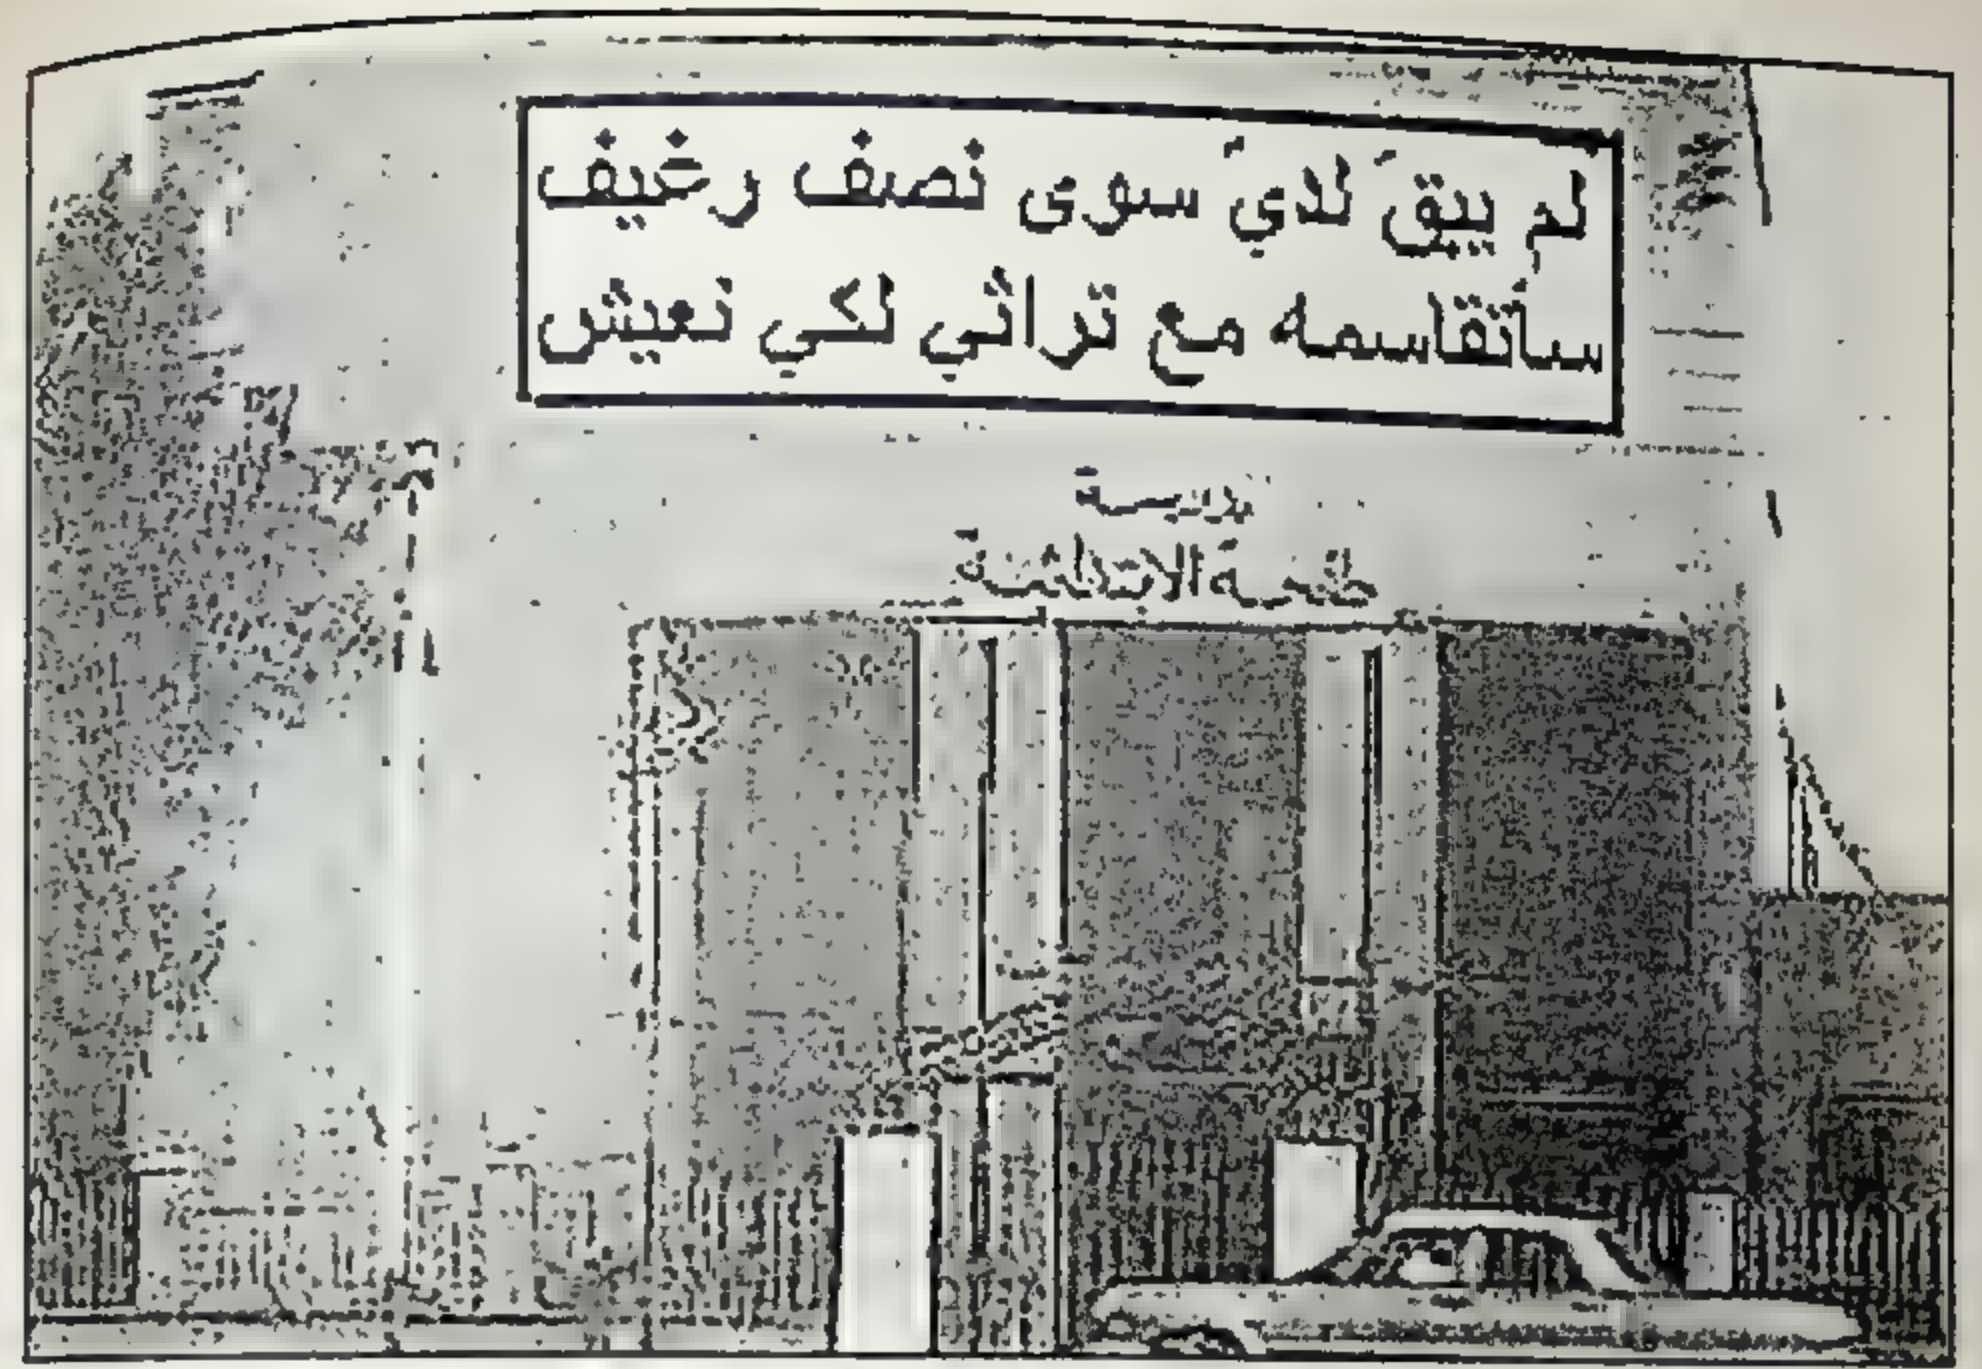 لم يبقَ لديَّ سوى نصف رغيف
سأتقاسمه مع تراثي لكي نعيش
مدرسة
الابتدائية